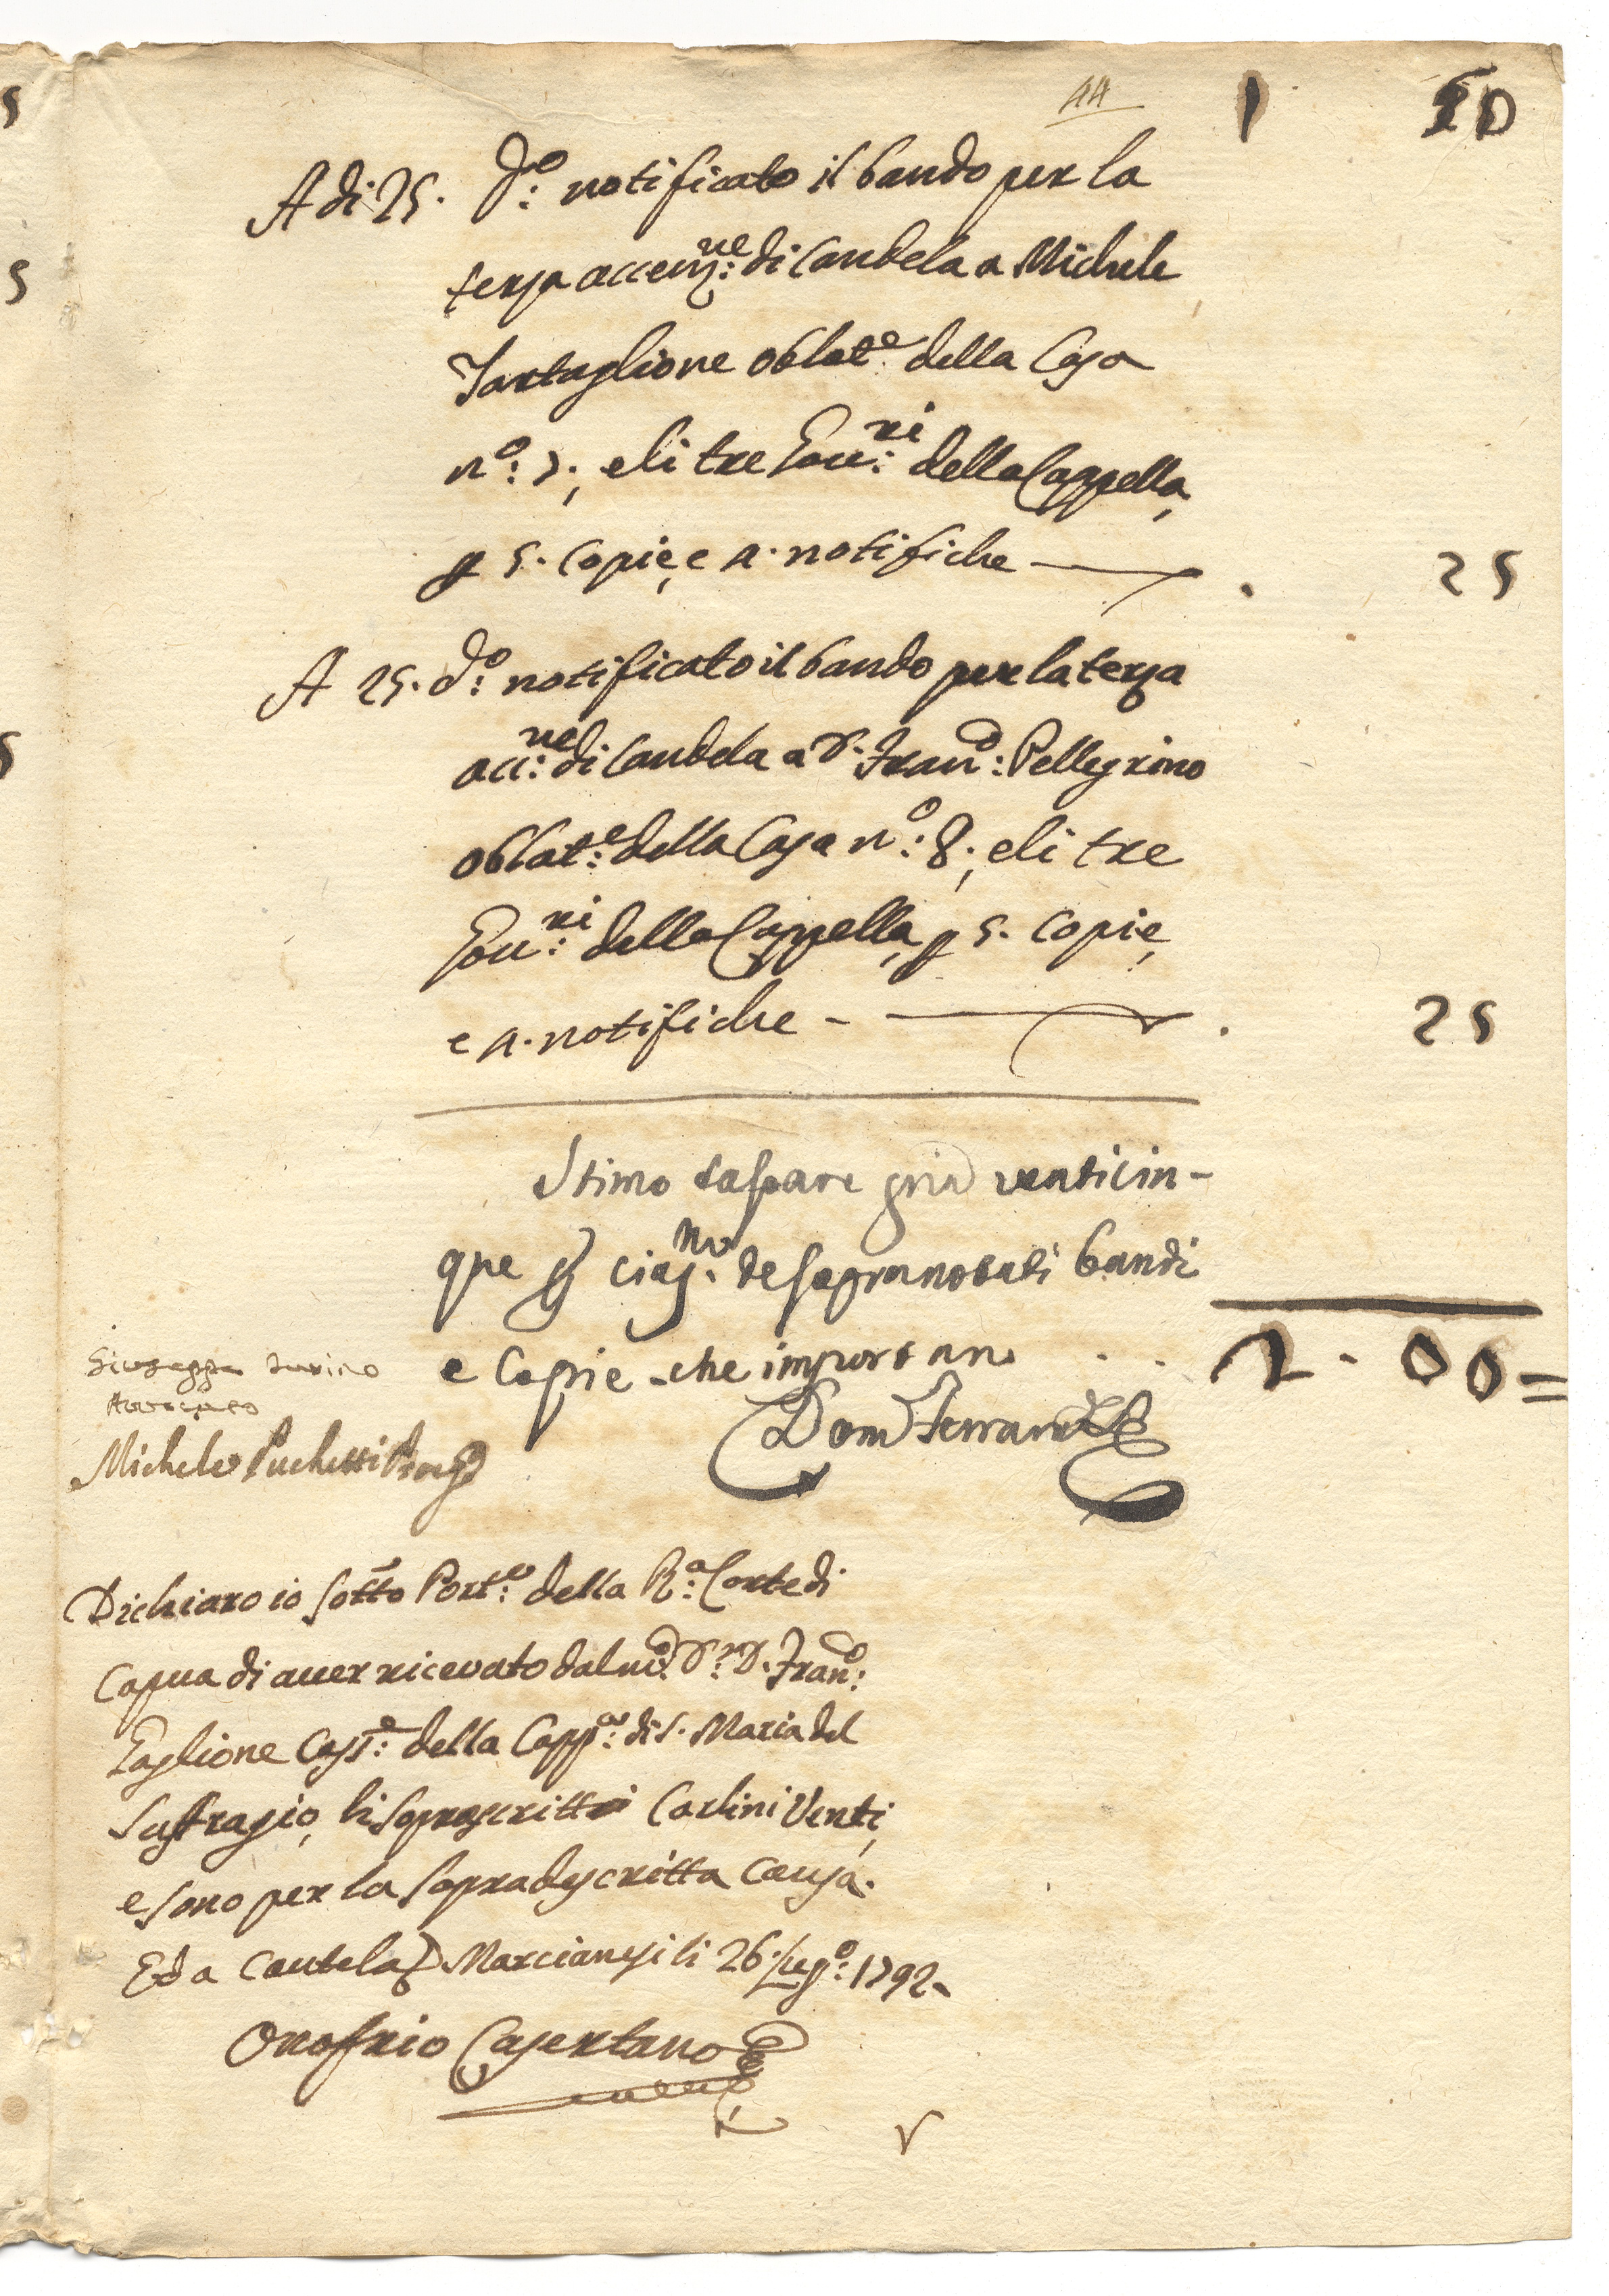 44
1 50
A di 25. d.o notificato il bando per la
terza accenz.ne di Candela a Michele
Tartaglione oblat.e della Casa
n.o: 7; e li tre Gov.ri della Cappella,
p 5. copie, e 4. notifiche — . 25
A 25. d.o notificato il bando per la terza
acc.ne di Candela a D. Fran.co: Pellegrino
oblat.e della Casa n.o: 8; e li tre
Gov.ri della Cappella, p 5. copie,
e 4. notifiche - — . 25
Stimo tassare grana venticin-
que p ciasc.no de sopranotati bandi
e Copie che importano . . 2 - 00=
Giuseppe
Dom.co Ferrar
Michele
Dichiaro io sotto Port.o della R.a Corte di
Capua di aver ricevuto dal mco. D.r D. Fran.co:
Goglione Cass.e della Capp.a di S. Maria del
Suffragio, li sopra scritti Carlini Venti,
e sono per la sopradescritta causa.
Ed a cautela Marcianesi li 26. Lug.o: 1792.
Onofrio Casertano